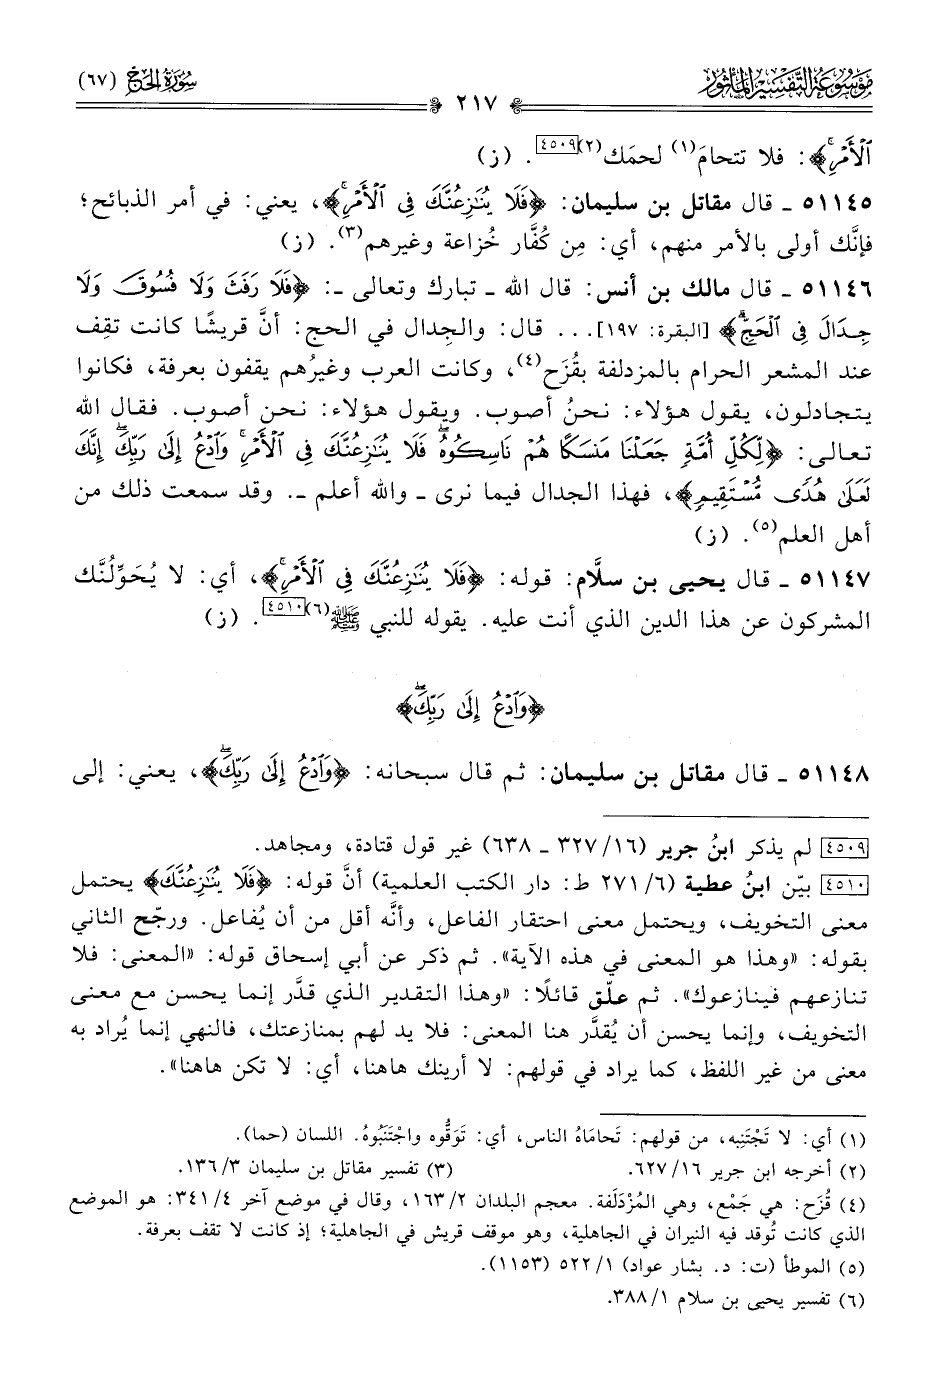 مَوْسُوعَةُ التَّفْسِيرِ المَأْثُورِ
سُورَةُ الحَجِّ (٦٧)
٢١٧
ٱلْأَمْرِۚ﴾: فلا تتحامَ(١) لحمَك(٢)[٤٥٠٩]. (ز)
٥١١٤٥ ـ قال مقاتل بن سليمان: ﴿فَلَا يُنَٰزِعُنَّكَ فِى ٱلْأَمْرِۚ﴾، يعني: في أمر الذبائح؛
فإنَّك أولى بالأمر منهم، أي: مِن كُفَّار خُزاعة وغيرهم(٣). (ز)
٥١١٤٦ ـ قال مالك بن أنس: قال الله ـ تبارك وتعالى ـ: ﴿فَلَا رَفَثَ وَلَا فُسُوقَ وَلَا
جِدَالَ فِى ٱلْحَجِّۗ﴾ [البقرة: ١٩٧]... قال: والجِدال في الحج: أنَّ قريشًا كانت تقِف
عند المشعر الحرام بالمزدلفة بقُزَح(٤)، وكانت العرب وغيرُهم يقفون بعرفة، فكانوا
يتجادلون، يقول هؤلاء: نحنُ أصوب. ويقول هؤلاء: نحن أصوب. فقال الله
تعالى: ﴿لِكُلِّ أُمَّةٍ جَعَلْنَا مَنسَكًا هُمْ نَاسِكُوهُۖ فَلَا يُنَٰزِعُنَّكَ فِى ٱلْأَمْرِۚ وَٱدْعُ إِلَىٰ رَبِّكَۖ إِنَّكَ
لَعَلَىٰ هُدًى مُّسْتَقِيمٍ﴾، فهذا الجدال فيما نرى ـ والله أعلم ـ. وقد سمعت ذلك من
أهل العلم(٥). (ز)
٥١١٤٧ ـ قال يحيى بن سلَّام: قوله: ﴿فَلَا يُنَٰزِعُنَّكَ فِى ٱلْأَمْرِۚ﴾، أي: لا يُحَوِّلُنَّك
المشركون عن هذا الدين الذي أنت عليه. يقوله للنبي ﷺ(٦)[٤٥١٠]. (ز)
﴿وَٱدْعُ إِلَىٰ رَبِّكَۖ﴾
٥١١٤٨ ـ قال مقاتل بن سليمان: ثم قال سبحانه: ﴿وَٱدْعُ إِلَىٰ رَبِّكَۖ﴾، يعني: إلى
[٤٥٠٩] لم يذكر ابنُ جرير (١٦/ ٣٢٧ ـ ٦٣٨) غير قول قتادة، ومجاهد.
[٤٥١٠] بيّن ابنُ عطية (٦/ ٢٧١ ط: دار الكتب العلمية) أنَّ قوله: ﴿فَلَا يُنَٰزِعُنَّكَ﴾ يحتمل
معنى التخويف، ويحتمل معنى احتقار الفاعل، وأنَّه أقل من أن يُفاعل. ورجّح الثاني
بقوله: «وهذا هو المعنى في هذه الآية». ثم ذكر عن أبي إسحاق قوله: «المعنى: فلا
تنازعهم فينازعوك». ثم علّق قائلًا: «وهذا التقدير الذي قدَّر إنما يحسن مع معنى
التخويف، وإنما يحسن أن يُقدَّر هنا المعنى: فلا يد لهم بمنازعتك، فالنهي إنما يُراد به
معنى من غير اللفظ، كما يراد في قولهم: لا أرينك هاهنا، أي: لا تكن هاهنا».
(١) أي: لا تَجْتَنِبه، من قولهم: تَحامَاهُ الناس، أي: تَوَقُّوه واجْتَنَبُوهُ. اللسان (حما).
(٢) أخرجه ابن جرير ١٦/ ٦٢٧. (٣) تفسير مقاتل بن سليمان ٣/ ١٣٦.
(٤) قُزَح: هي جَمْع، وهي المُزْدَلَفة. معجم البلدان ٢/ ١٦٣، وقال في موضع آخر ٤/ ٣٤١: هو الموضع
الذي كانت تُوقد فيه النيران في الجاهلية، وهو موقف قريش في الجاهلية؛ إذ كانت لا تقف بعرفة.
(٥) الموطأ (ت: د. بشار عواد) ١/ ٥٢٢ (١١٥٣).
(٦) تفسير يحيى بن سلام ١/ ٣٨٨.